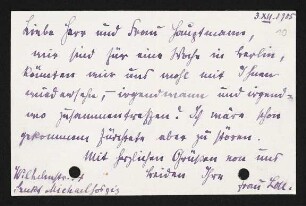 3.XII.1905
10
Liebe Herr und Frau Hauptmann,
wir sind für eine Woche in Berlin,
könnten wir uns wohl mit Ihnen
wiedersehn, – irgendwann und irgend-
wo zusammentreffen? Ich wäre schon
gekommen fürchtete aber zu stören.
Mit herzlichen Grüßen von uns
beiden Ihre
Frau
Sankt Michaelhospiz